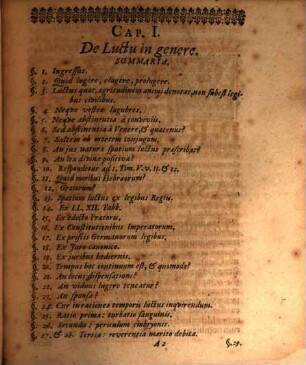 CAP. I.
De Luctu in genere.
SUMMARIA.
§. 1. Ingressus.
§. 2. Quid lugere, elugere, prolugere.
§. 3. Luctus quat. ægritudinem animi denotat, non subest legi-
bus civilibus.
§. 4. Neque vestes lugubres,
§. 5. Neque abstinentia à conviviis,
§. 6. Sed abstinentia à Venere, & quatenus?
§. 7. Saltem ob mortem conjugum,
§. 8. An jus naturæ spatium luctus præscribat?
§. 9. An lex divina positiva?
§. 10. Respondetur ad I. Tim. V. v. 11. & 12.
§. 11. Quid moribus Hebræorum?
§. 12. Græcorum?
§. 13. Spatium luctus ex legibus Regiis.
§. 14. Ex LL. XII. Tabb.
§. 15. Ex edicto Prætoris,
§. 16. Ex Constitutionibus Imperatorum,
§. 17. Ex priscis Germanorum legibus,
§. 18. Ex Jure canonico.
§. 19. Ex juribus hodiernis.
§. 20. Tempus hoc continuum est, & quomodo?
§. 21. An locus dispensationi?
§. 22. An viduus lugere teneatur?
§. 23. An sponsa?
§. 24. Cur in rationes temporis luctus inquirendum.
§. 25. Ratio prima: turbatio sanguinis.
§. 26. Secunda: periculum embryonis.
§. 27. & 28. Tertia: reverentia marito debita.
A 2 §. 29.